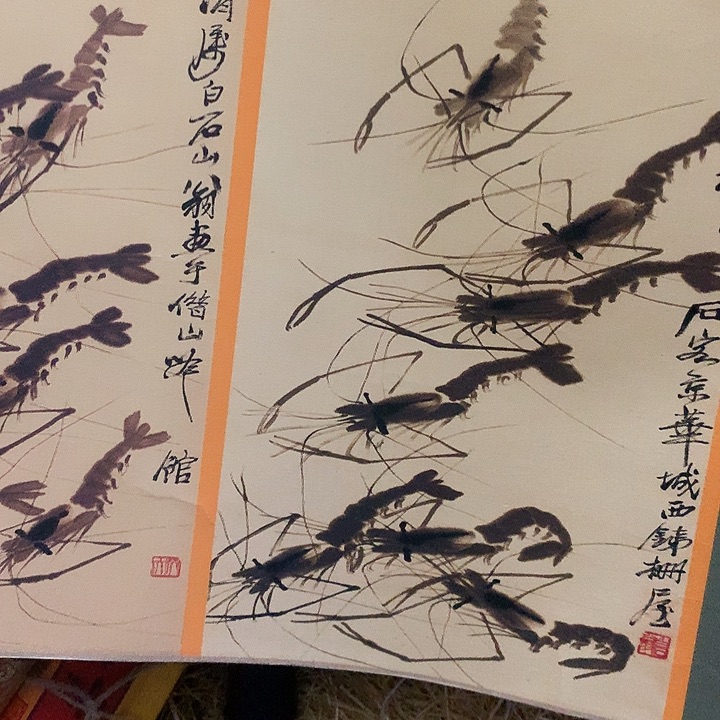 白石山翁画于借山吟
館
石客京華城西鉄柵屋